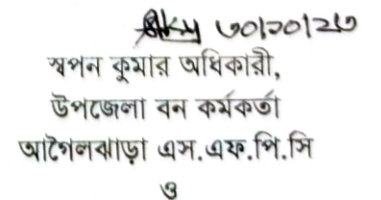 ৩০/১০/২৩
স্বপন কুমার অধিকারী,
উপজেলা বন কর্মকর্তা
আগৈলঝাড়া এস.এফ.পি.সি
ও